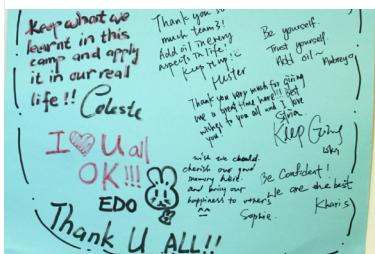 Keep what we
learnt in this
camp and apply
it in our real
life!!
Celeste
Thank you so
much team3!
Add oil in every
aspects in life!
Keep it up! :)
Hester
Be yourself.
Trust yourself.
Add oil~
Aubreyo
Thank you very much for giving
me a great time here!!! Best
wishes to you all and I love
you
Silvia
Keep Going
I ♡ U all
OK!!!
EDO
wish we should
cherish our good
memory here.
and bring our
happiness to others
^^
Sophie.
Be Confident!
We are the best
Kharis
Thank U ALL!!